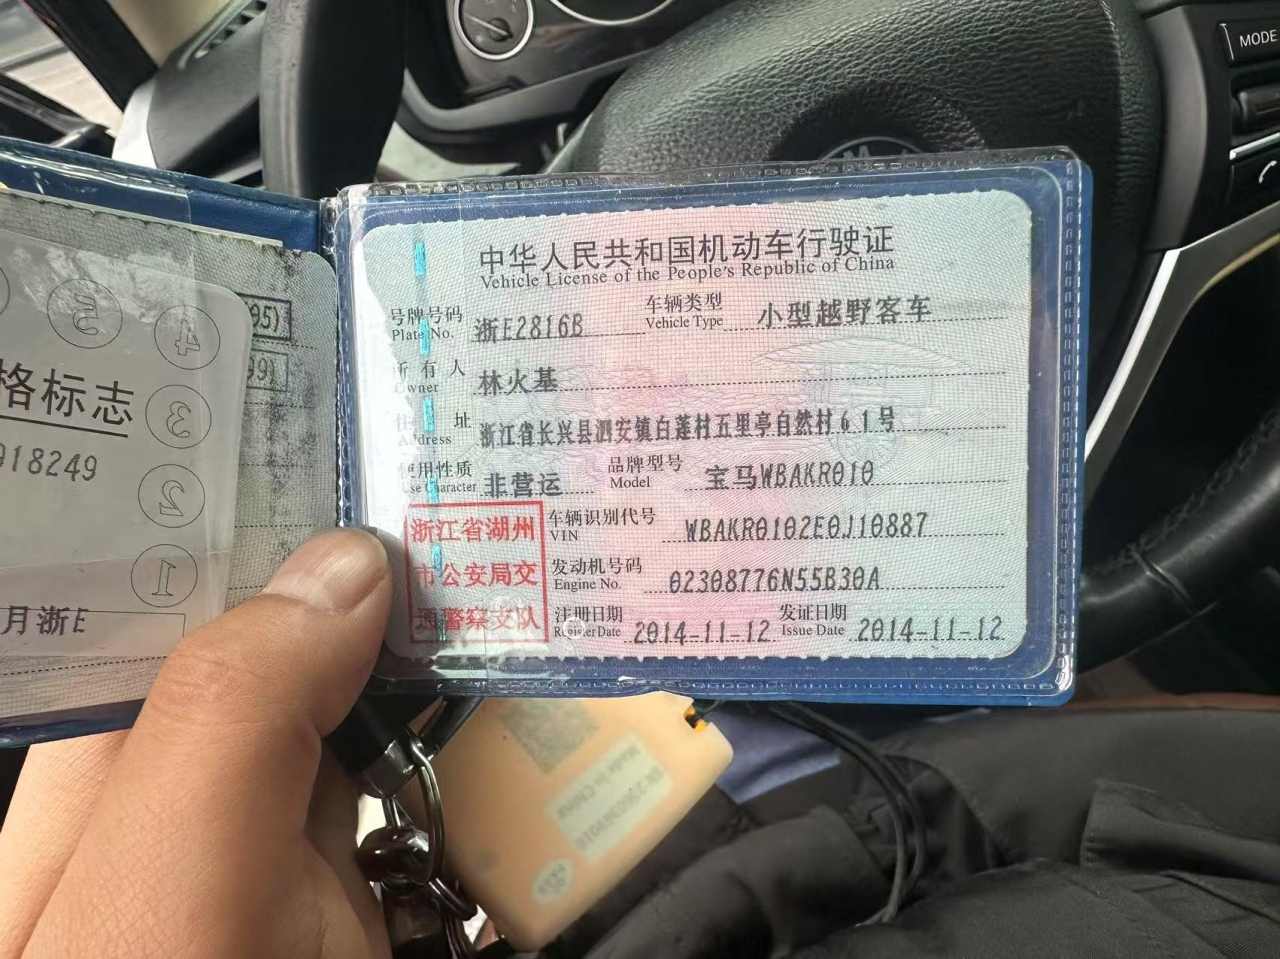 中华人民共和国机动车行驶证
Vehicle License of the People's Republic of China
号牌号码 Plate No. 浙E2816B 车辆类型 Vehicle Type 小型越野客车
所有人 Owner 林火基
住址 Address 浙江省长兴县泗安镇白莲村五里亭自然村61号
使用性质 Use Character 非营运 品牌型号 Model 宝马WBAKR010
车辆识别代号 VIN WBAKR0102E0J10887
发动机号码 Engine No. 02308776N55B30A
注册日期 Register Date 2014-11-12 发证日期 Issue Date 2014-11-12
浙江省湖州
市公安局交
通警察支队
格标志
918249
5
4
3
2
1
月浙E
95)
99)
MODE
Made in China